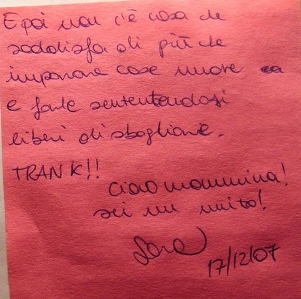 E poi non c'è cosa che
soddisfa di più che
imparare cose nuove
e farle sentendosi
liberi di sbagliare.
TRANK!!
Ciao mammina!
sei un mito!
Sara
17/12/07